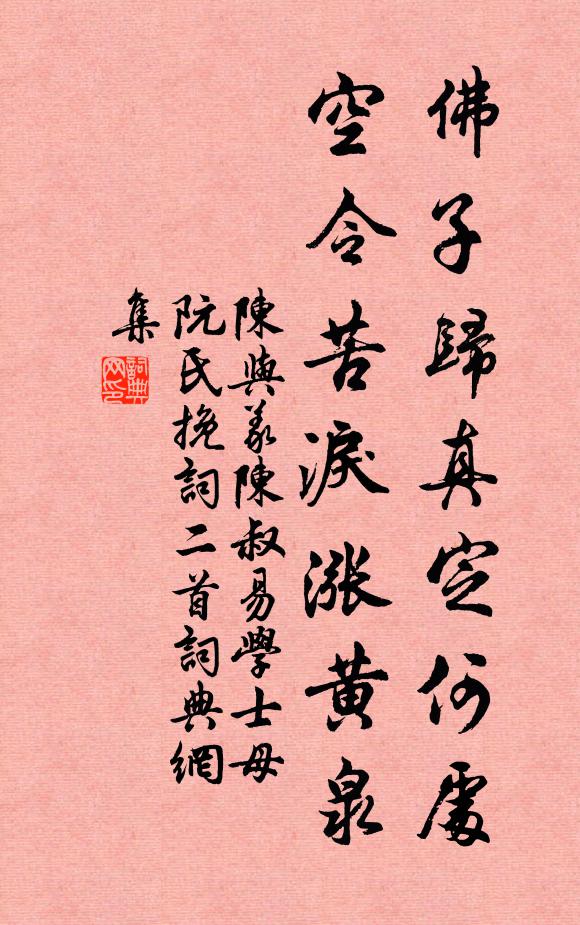 佛子歸真定何處
空令苦淚漲黃泉
陳與義陳叔易學士母
阮氏挽詞二首詞典網
集
詞典
网印